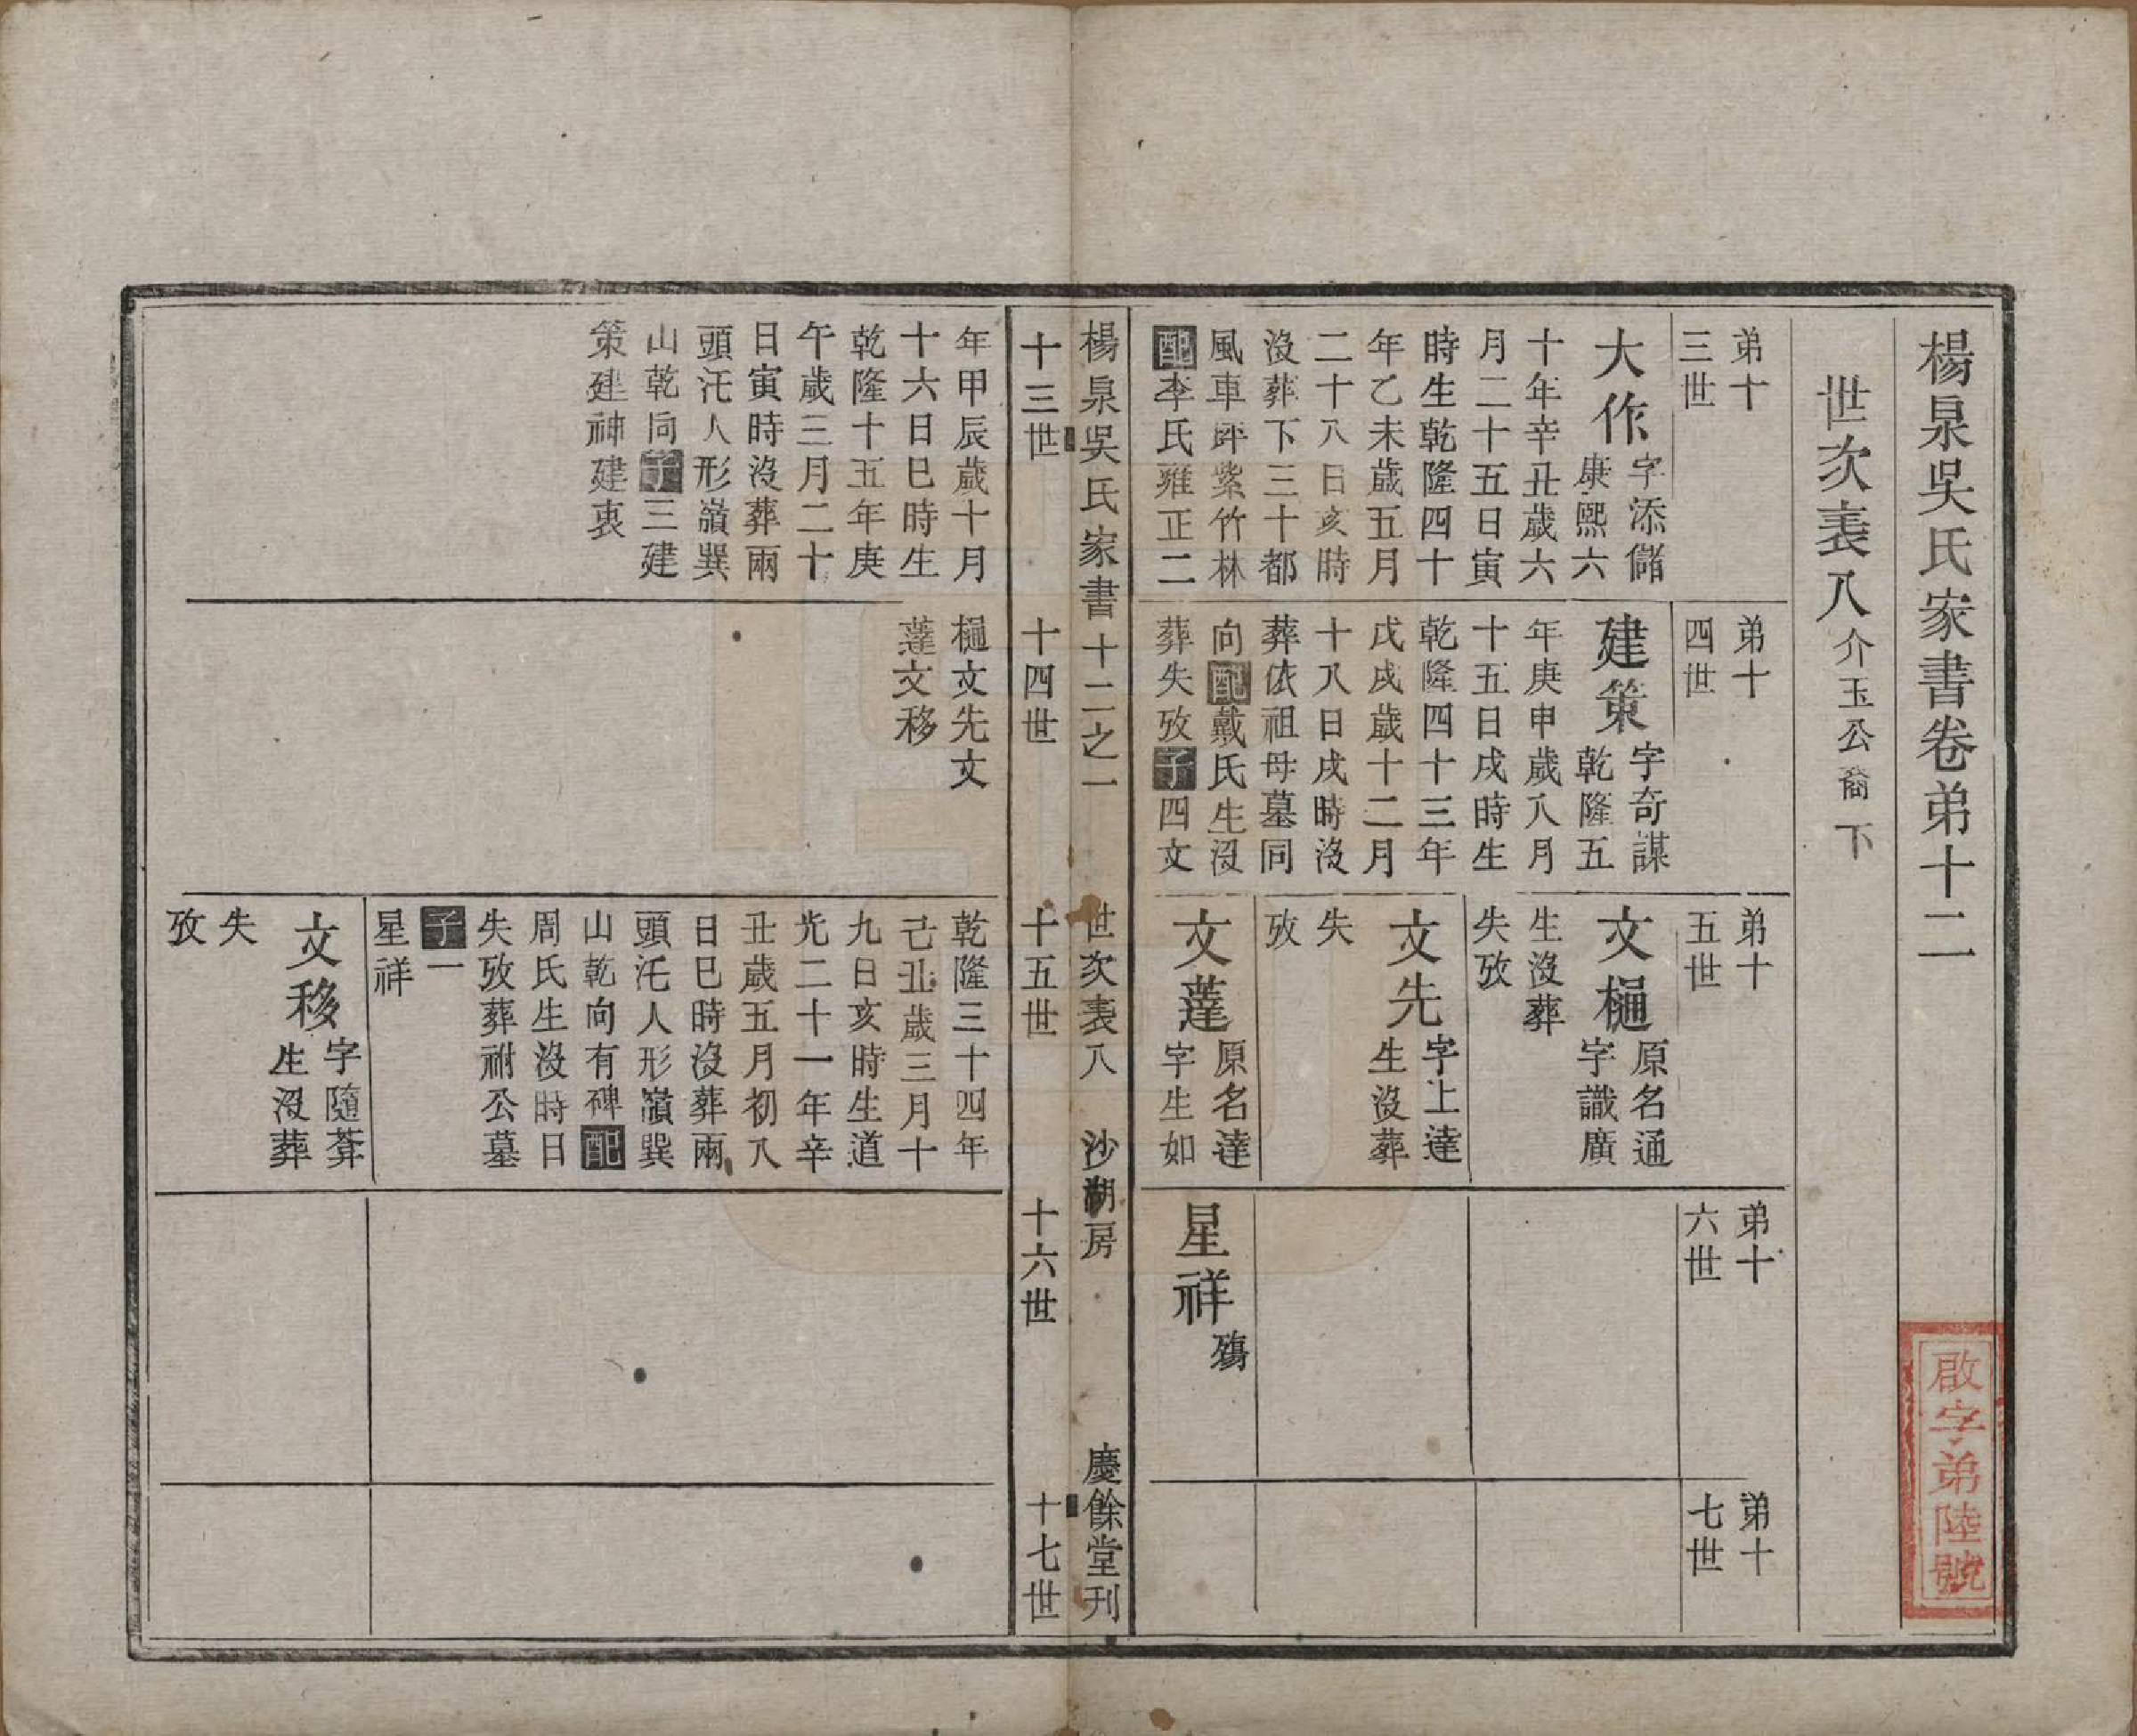 楊泉吳氏家書卷弟十二
世次表八介玉公裔下
弟十
三世
大作
字添儲
康熙六
十年辛丑歲六
月二十五日寅
時生乾隆四十
年乙未歲五月
二十八日亥時
沒葬下三十都
風車坪紫竹林
配李氏雍正二
弟十
四世
建策
字奇謀
乾隆五
年庚申歲八月
十五日戌時生
乾隆四十三年
戊戌歲十二月
十八日戌時沒
葬依祖母墓同
向配戴氏生沒
葬失攷子四文
弟十
五世
文樋
原名通
字識廣
生沒葬
失攷
文先
字上達
生沒葬
失
攷
文薘
原名達
字生如
弟十
六世
星祥
殤
弟十
七世
啟字弟陸號
楊泉吳氏家書十二之一
世次表八
沙湖房
慶餘堂刊
十三世
十四世
十五世
十六世
十七世
年甲辰歲十月
十六日巳時生
乾隆十五年庚
午歲三月二十
日寅時沒葬兩
頭汑人形嶺巽
山乾向子三建
策建神建衷
樋文先文
薘文移
乾隆三十四年
己丑歲三月十
九日亥時生道
光二十一年辛
丑歲五月初八
日巳時沒葬兩
頭汑人形嶺巽
山乾向有碑配
周氏生沒時日
失攷葬祔公墓
子一
星祥
文移
字隨葊
生沒葬
失
攷